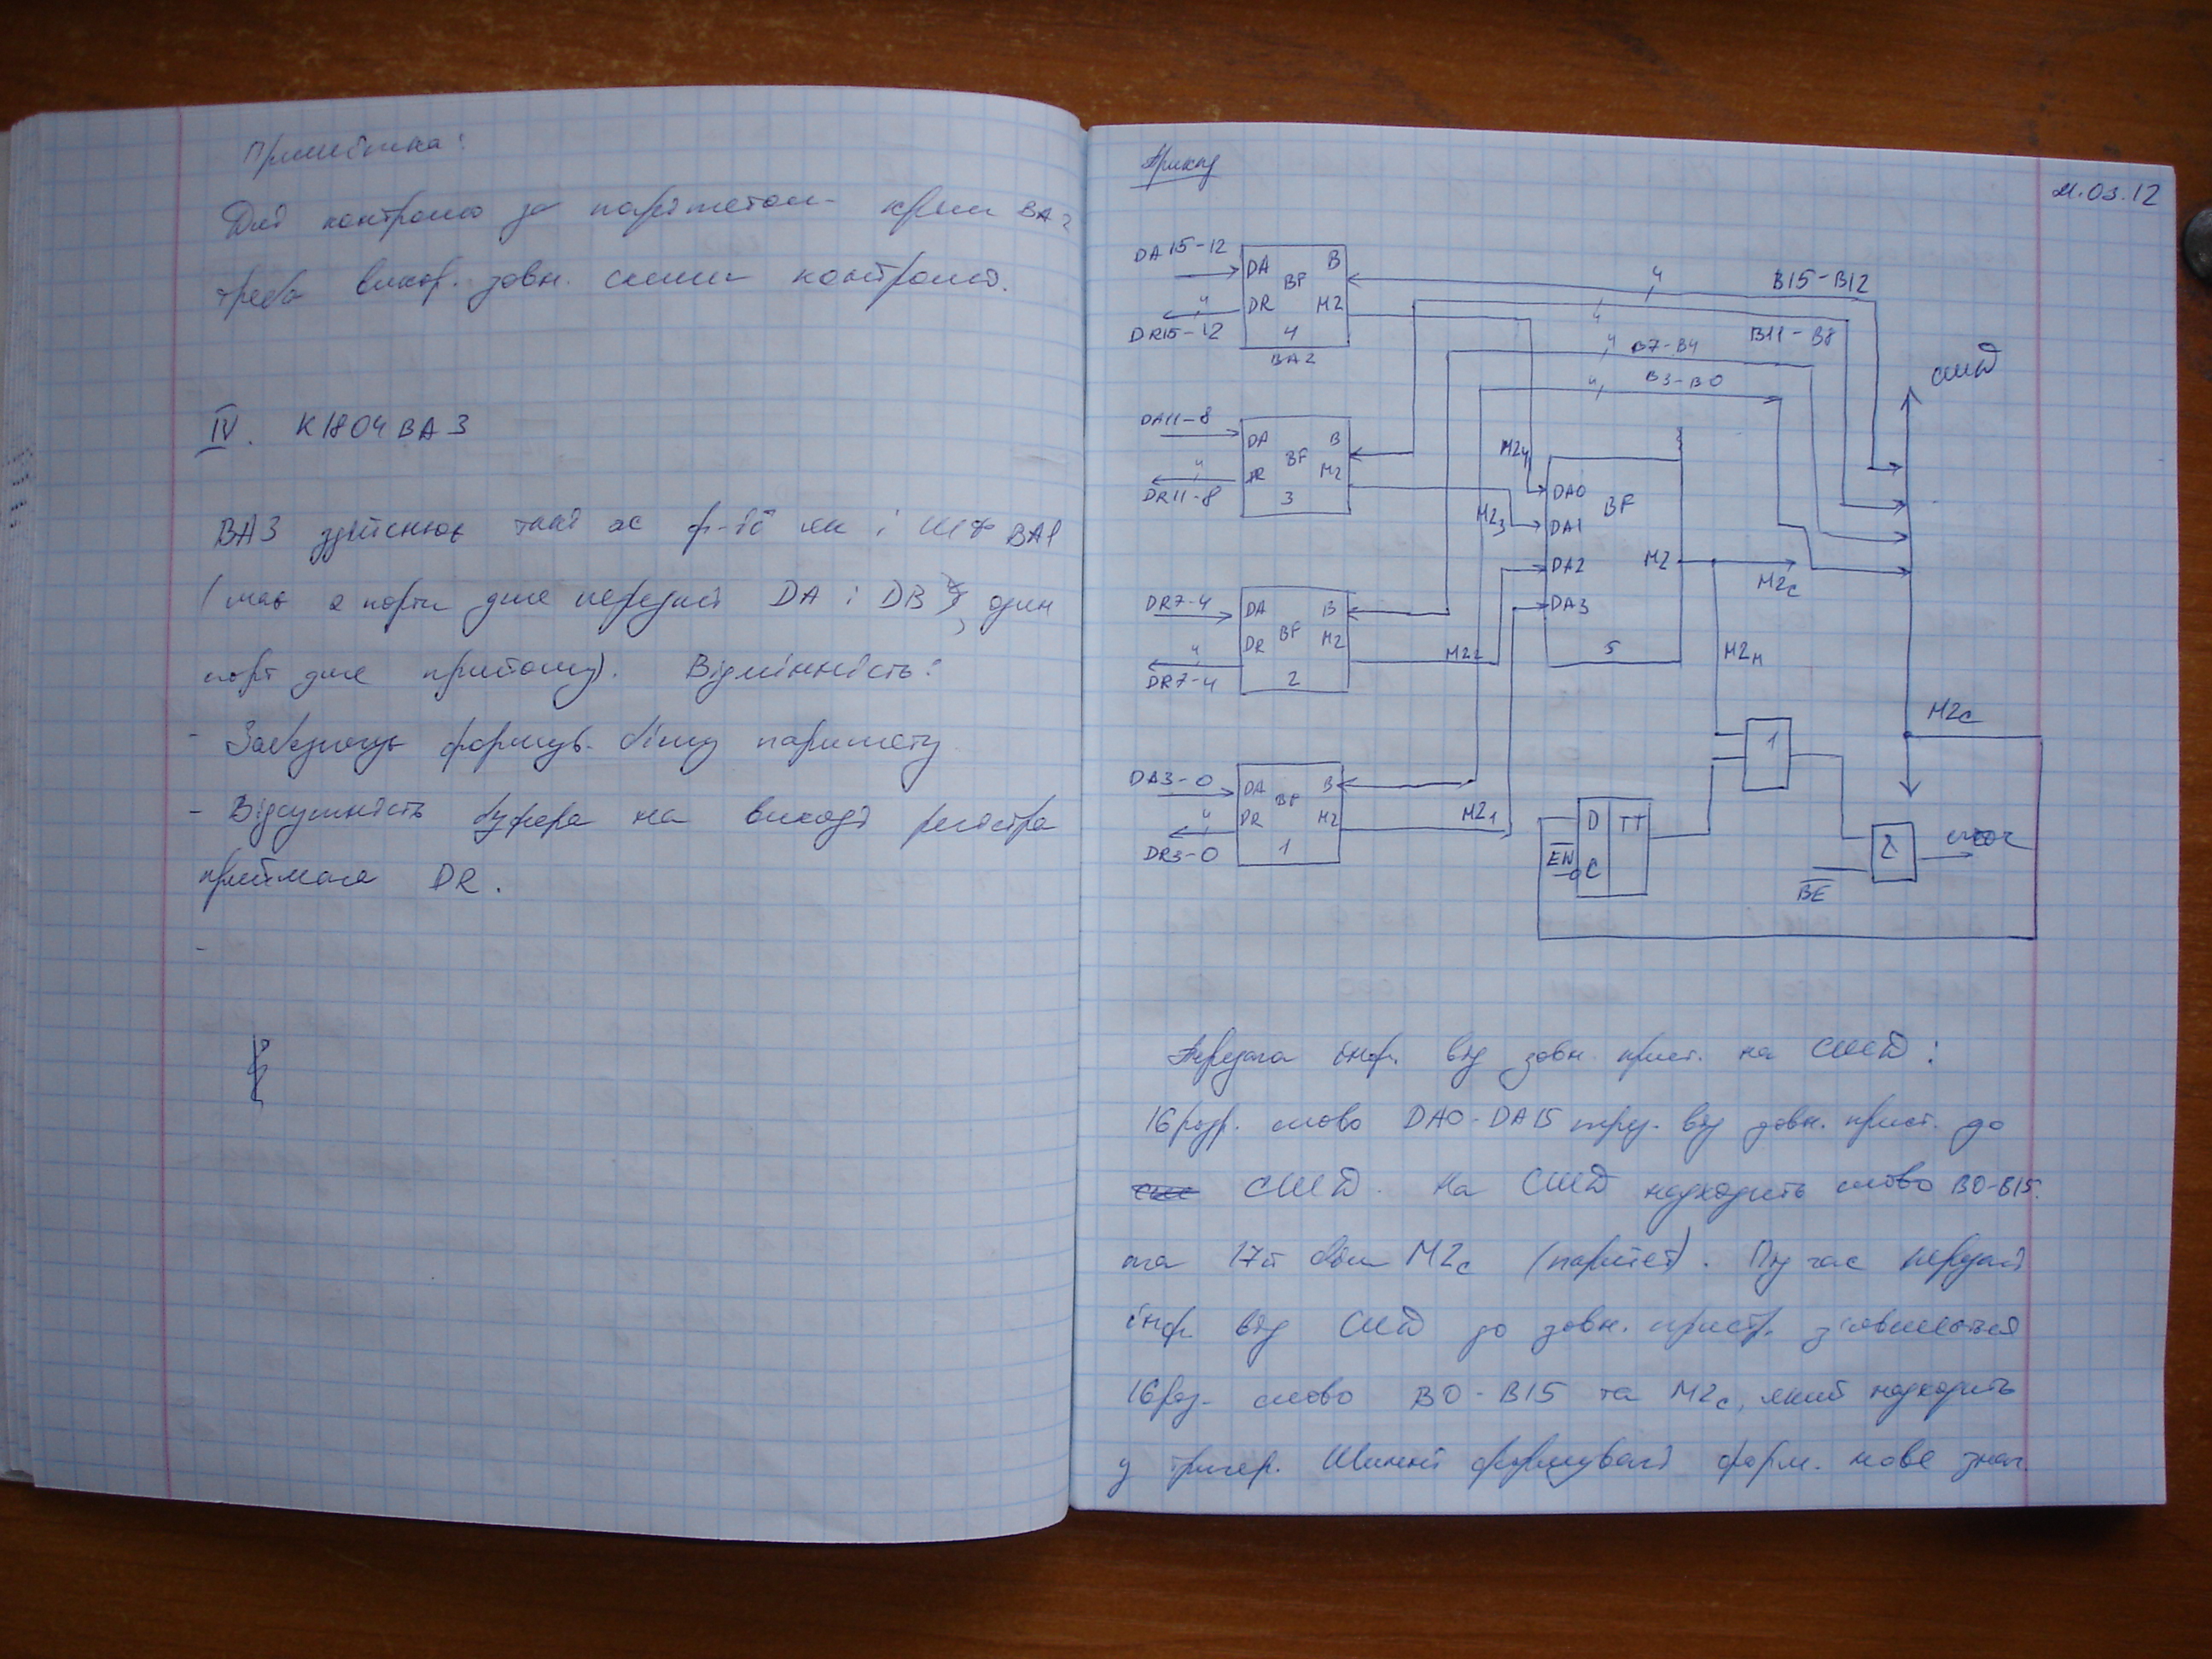 Примітка:
Для контролю за паритетом крім ВА2
треба викор. зовн. схеми контролю.
IV. К1804ВА3
ВА3 здійснює такі ж ф-ії як і ШФ ВА1
(має 2 порти для передачі DA і DB, один
порт для прийому). Відмінність:
- Забезпечує формув. біту паритету
- Відсутність буфера на виході регістра
приймача DR.
-
Приклад
21.03.12
DA15-12
DA B
BF
DR M2
4
4
DR15-12
BA2
4
B15-B12
4
B11-B8
4
B7-B4
4
B3-B0
СШД
DA11-8
DA B
BF
DR M2
4
3
DR11-8
M2₄
DA0
BF
M2₃
DA1
DA2
M2
M2c
DA3
5
M2н
DR7-4
DA B
BF
DR M2
4
2
DR7-4
M2₂
M2c
1
DA3-0
DA B
BF
DR M2
4
1
DR3-0
M2₁
D TT
EN
C
2
BE
Передача інф. від зовн. прист. на СШД:
16 розр. слово DA0-DA15 пер. від зовн. прист. до
СШД. На СШД надходить слово B0-B15
та 17й біт M2c (паритет). Під час передачі
інф. від СШД до зовн. пристр. з'являється
16 роз. слово B0-B15 та M2c, який надходить
у тригер. Шинні формувачі форм. нове знач.